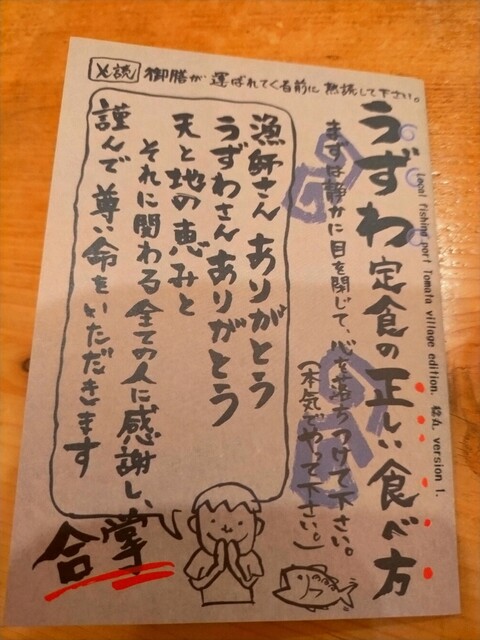 必読 御膳が運ばれてくる前に熟読して下さい。
うずわ定食の正しい食べ方
Local fishing port Tomato village edition. version 1.
まずは静かに目を閉じて、心を落ちつけて下さい。
(本気でやって下さい。)
漁師さんありがとう
うずわさんありがとう
天と地の恵みと
それに関わる全ての人に感謝し、
謹んで尊い命をいただきます
合掌